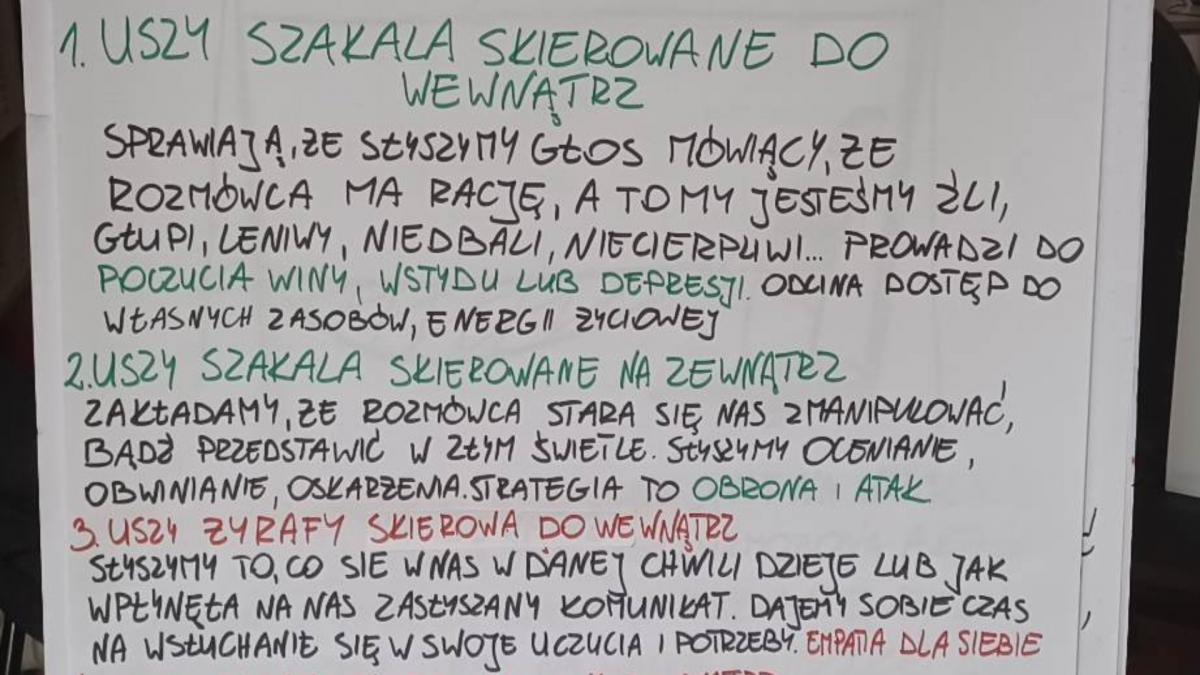 1. USZY SZAKALA SKIEROWANE DO
WEWNĄTRZ
SPRAWIAJĄ, ŻE SŁYSZYMY GŁOS MÓWIĄCY, ŻE
ROZMÓWCA MA RACJĘ, A TO MY JESTEŚMY ŹLI,
GŁUPI, LENIWY, NIEDBALI, NIECIERPLIWI... PROWADZI DO
POCZUCIA WINY, WSTYDU LUB DEPRESJI. ODCINA DOSTĘP DO
WŁASNYCH ZASOBÓW, ENERGII ŻYCIOWEJ
2. USZY SZAKALA SKIEROWANE NA ZEWNĄTRZ
ZAKŁADAMY, ŻE ROZMÓWCA STARA SIĘ NAS ZMANIPULOWAĆ,
BĄDŹ PRZEDSTAWIĆ W ZŁYM ŚWIETLE. SŁYSZYMY OCENIANIE,
OBWINIANIE, OSKARŻENIA. STRATEGIA TO OBRONA I ATAK
3. USZY ŻYRAFY SKIEROWA DO WEWNĄTRZ
SŁYSZYMY TO, CO SIE W NAS W DANEJ CHWILI DZIEJE LUB JAK
WPŁYNĘŁA NA NAS ZASŁYSZANY KOMUNIKAT. DAJEMY SOBIE CZAS
NA WSŁUCHANIE SIĘ W SWOJE UCZUCIA I POTRZEBY. EMPATIA DLA SIEBIE